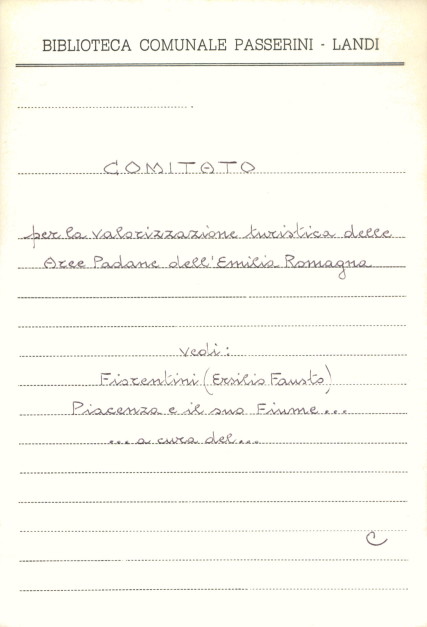 BIBLIOTECA COMUNALE PASSERINI - LANDI
COMITATO
per la valorizzazione turistica delle
Aree Padane dell'Emilia Romagna
vedi:
Fiorentini (Ersilio Fausto)
Piacenza e il suo Fiume...
...a cura del...
C